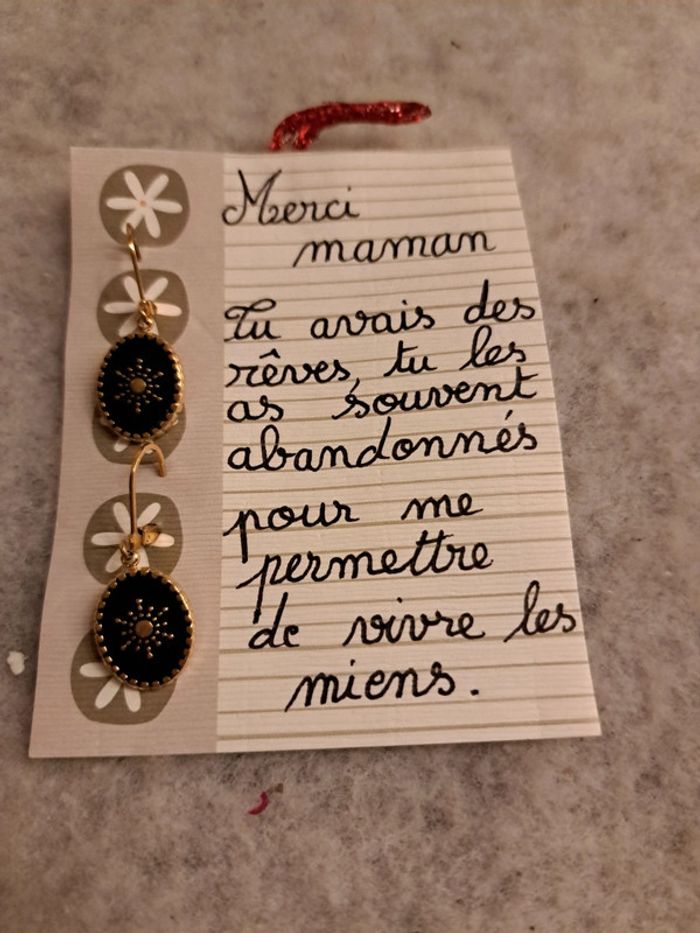 Merci
maman
Tu avais des
rêves, tu les
as souvent
abandonnés
pour me
permettre
de vivre les
miens.